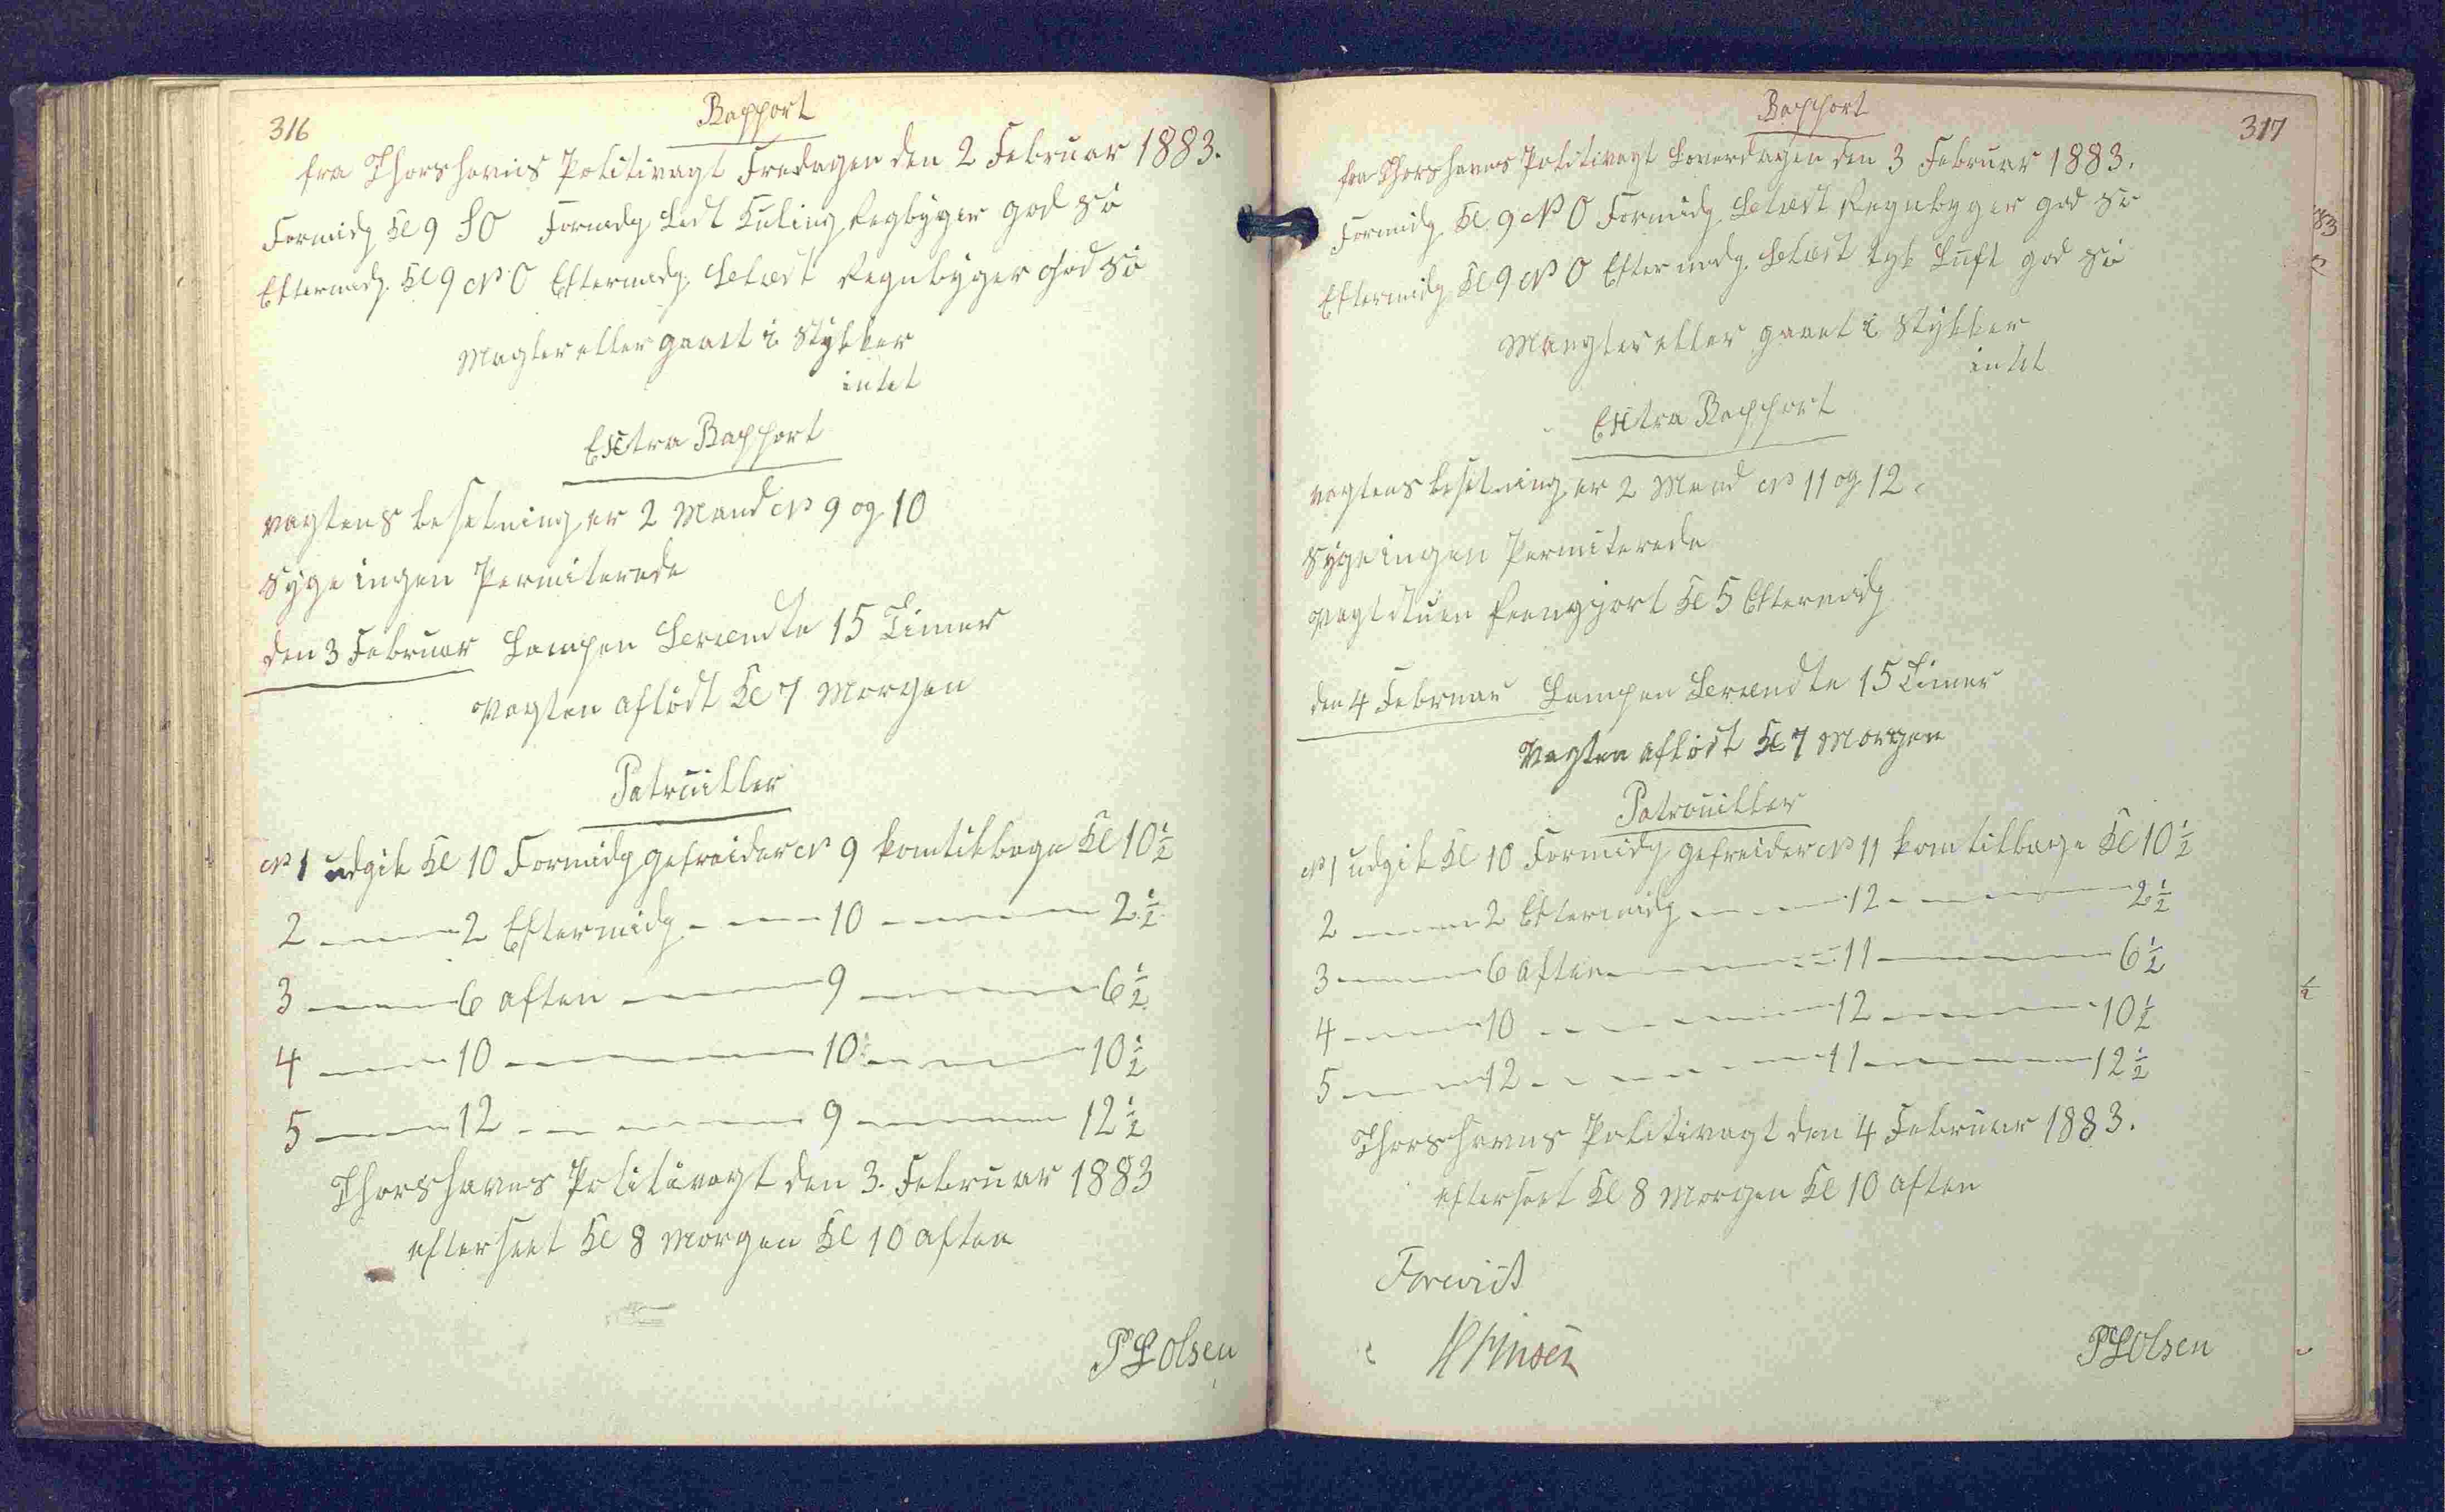 316
Rapport
fra Thorshavns Politivagt Fredagen den 2 Februar 1883.
Formidg Kl 9 SO Formidg Lest Kuling Regbyger god Sö
Eftermidg. Kl 9 N O Eftermidg. Selást Regnbyger God Sö
Magler eller gaaet i Stykker
intet
Extra Rapport
vagtens besetning er 2 Mand No 9 og 10
Syge ingen Permiterede
den 3 Februar Lampen Brændte 15 Timer
Vagten aflöst Kl 7 Morgen
Patrouiller
No 1 udgik Kl 10 Formidg gefreider No 9 kom tilbage Kl 10 1/2
2 — 2 Eftermidg — 10 — 2 1/2
3 — 6 aften — 9 — 6 1/2
4 — 10 — 10 — 10 1/2
5 — 12 — 9 — 12 1/2
Thorshavns Politivagt den 3. Februar 1883
efterseet Kl 8 Morgen Kl 10 aften
P L Olsen
317
Rapport
fra Thorshavns Politivagt Loverdagen den 3 Februar 1883.
Formidg Kl. 9 N O Formidg. Regnbyger god Sö
Eftermidg Kl 9 N O Eftermidg. tyk Luft god Sö
Mangler eller gaaet i Stykker
intet
Extra Rapport
vagtens besetning er 2 Mand No 11 og 12.
Syge ingen Permiterede
Vagtstuen Reengjort Kl 5 Eftermidg
den 4 Februar Lampen Brændte 15 Timer
Vagten aflöst Kl 7 Morgen
Patrouiller
No 1 udgik Kl 10 Formidg gefreider No 11 kom tilbage Kl 10 1/2
2 — 2 Eftermidg — 12 — 2 1/2
3 — 6 aften — 11 — 6 1/2
4 — 10 — 12 — 10 1/2
5 — 12 — 11 — 12 1/2
Thorshavns Politivagt den 4 Februar 1883.
efterseet Kl 8 Morgen Kl 10 aften
Forevist
P L Olsen